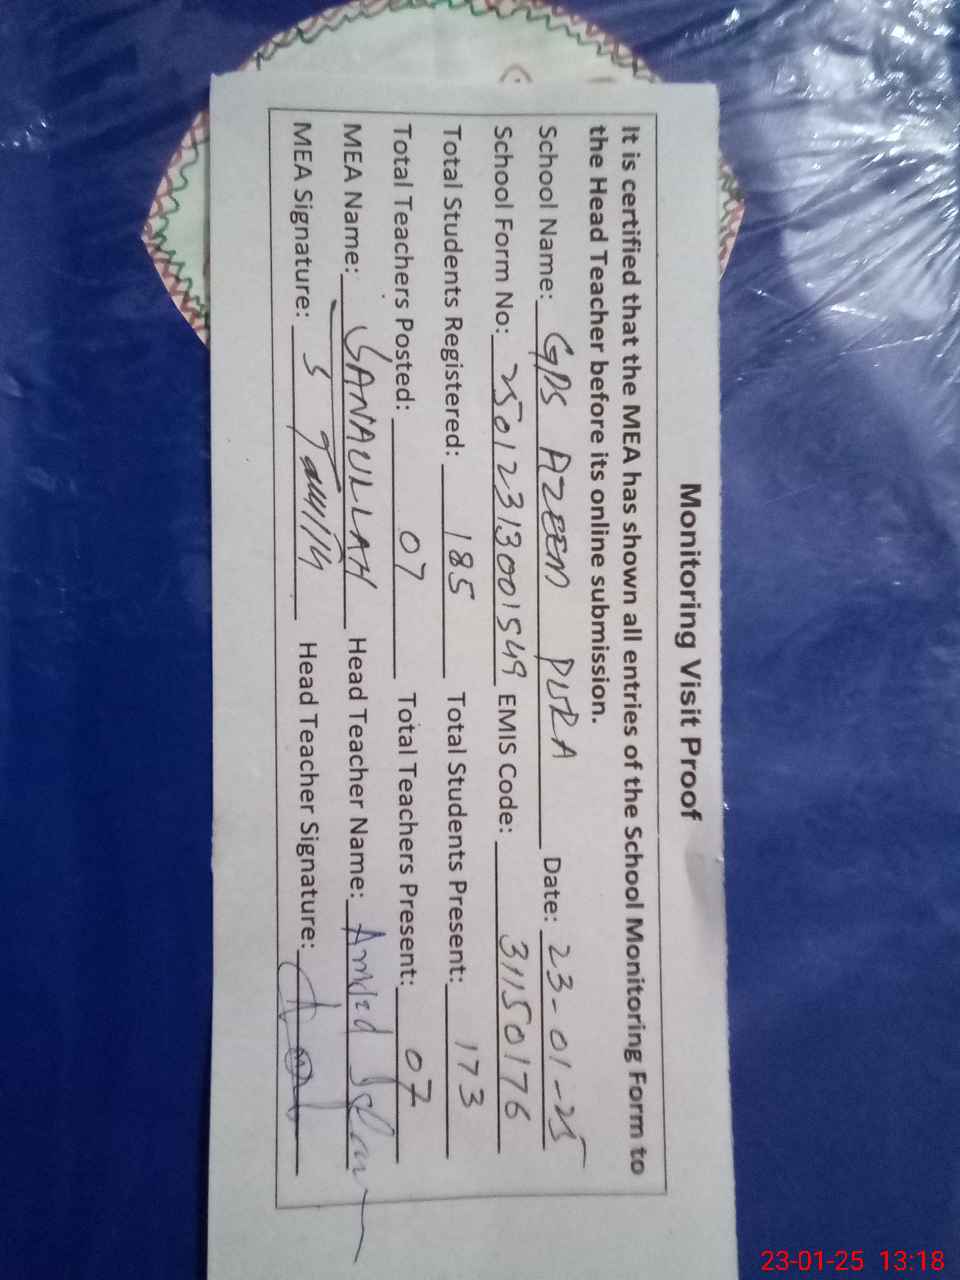 Monitoring Visit Proof
It is certified that the MEA has shown all entries of the School Monitoring Form to
the Head Teacher before its online submission.
School Name: GPS AZEEM PURA Date: 23-01-25
School Form No: 25012313001549 EMIS Code: 31150176
Total Students Registered: 185 Total Students Present: 173
Total Teachers Posted: 07 Total Teachers Present: 07
MEA Name: SANAULLAH Head Teacher Name:
MEA Signature: Head Teacher Signature:
23-01-25 13:18